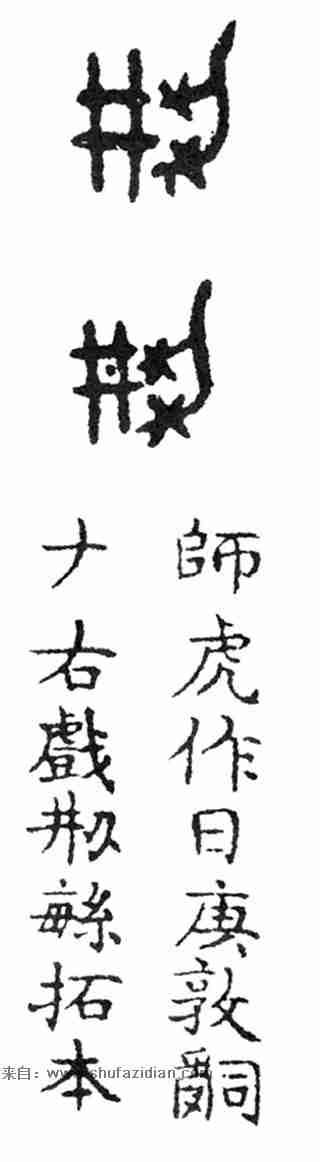 師虎作日庚敦𤔲
ナ右戲刱緐拓本
来自：www.shufazidian.com